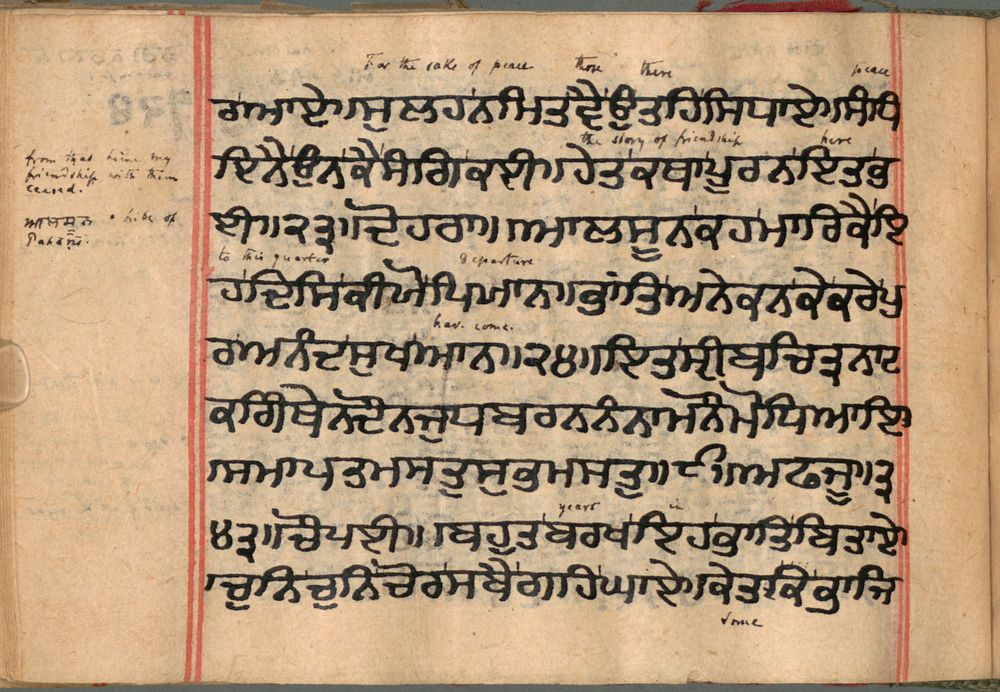 For the sake of peace those there peace
ਰਾਮਾਏ।ਸੁਲਹਨਮਿਤਵੈਉਤਹਿਸਿਧਾਏ।ਸੰਧਿ
the story of friendship here
ਇਨੈਉਨਕੈਸੰਗਿਕਈ॥ਹੇਤਕਥਾਪੂਰਨਇਤਭ
from that time my
friendship with them
ceased.
ਈ॥੨੩॥ਦੋਹਰਾ॥ਆਲਸੂਨਕਹਮਾਰਿਕੈਇ
ਆਲਸੂਨ a tribe of
Pahāṛīs.
to this quarter departure
ਹਦਿਸਿਕੀਯੋਪਿਯਾਨ।ਭਾਂਤਿਅਨੇਕਨਕੇਕਰੇਪੁ
hav. come.
ਰਅਨੰਦਸੁਖਆਨ॥੨੪॥ਇਤਸ੍ਰੀਬਚਿਤ੍ਰਨਾਟ
ਕਗ੍ਰਿੰਥੇਨਦੌਨਜੁਧਬਰਨਨੰਨਾਮਨੌਮੋਧਿਆਇ
।ਸਮਾਪਤਮਸਤੁਸੁਭਮਸਤੁ॥੯॥ਅਫਜੂ॥੩
years in
੪੩॥ਚੌਪਈ॥ਬਹੁਤਬਰਖਇਹਭਾਤਿਬਿਤਾਏ
।ਚੁਨਿਚੁਨਿਚੋਰਸਬੈਗਹਿਘਾਏ।ਕੇਤਕਿਭਾਜਿ
some